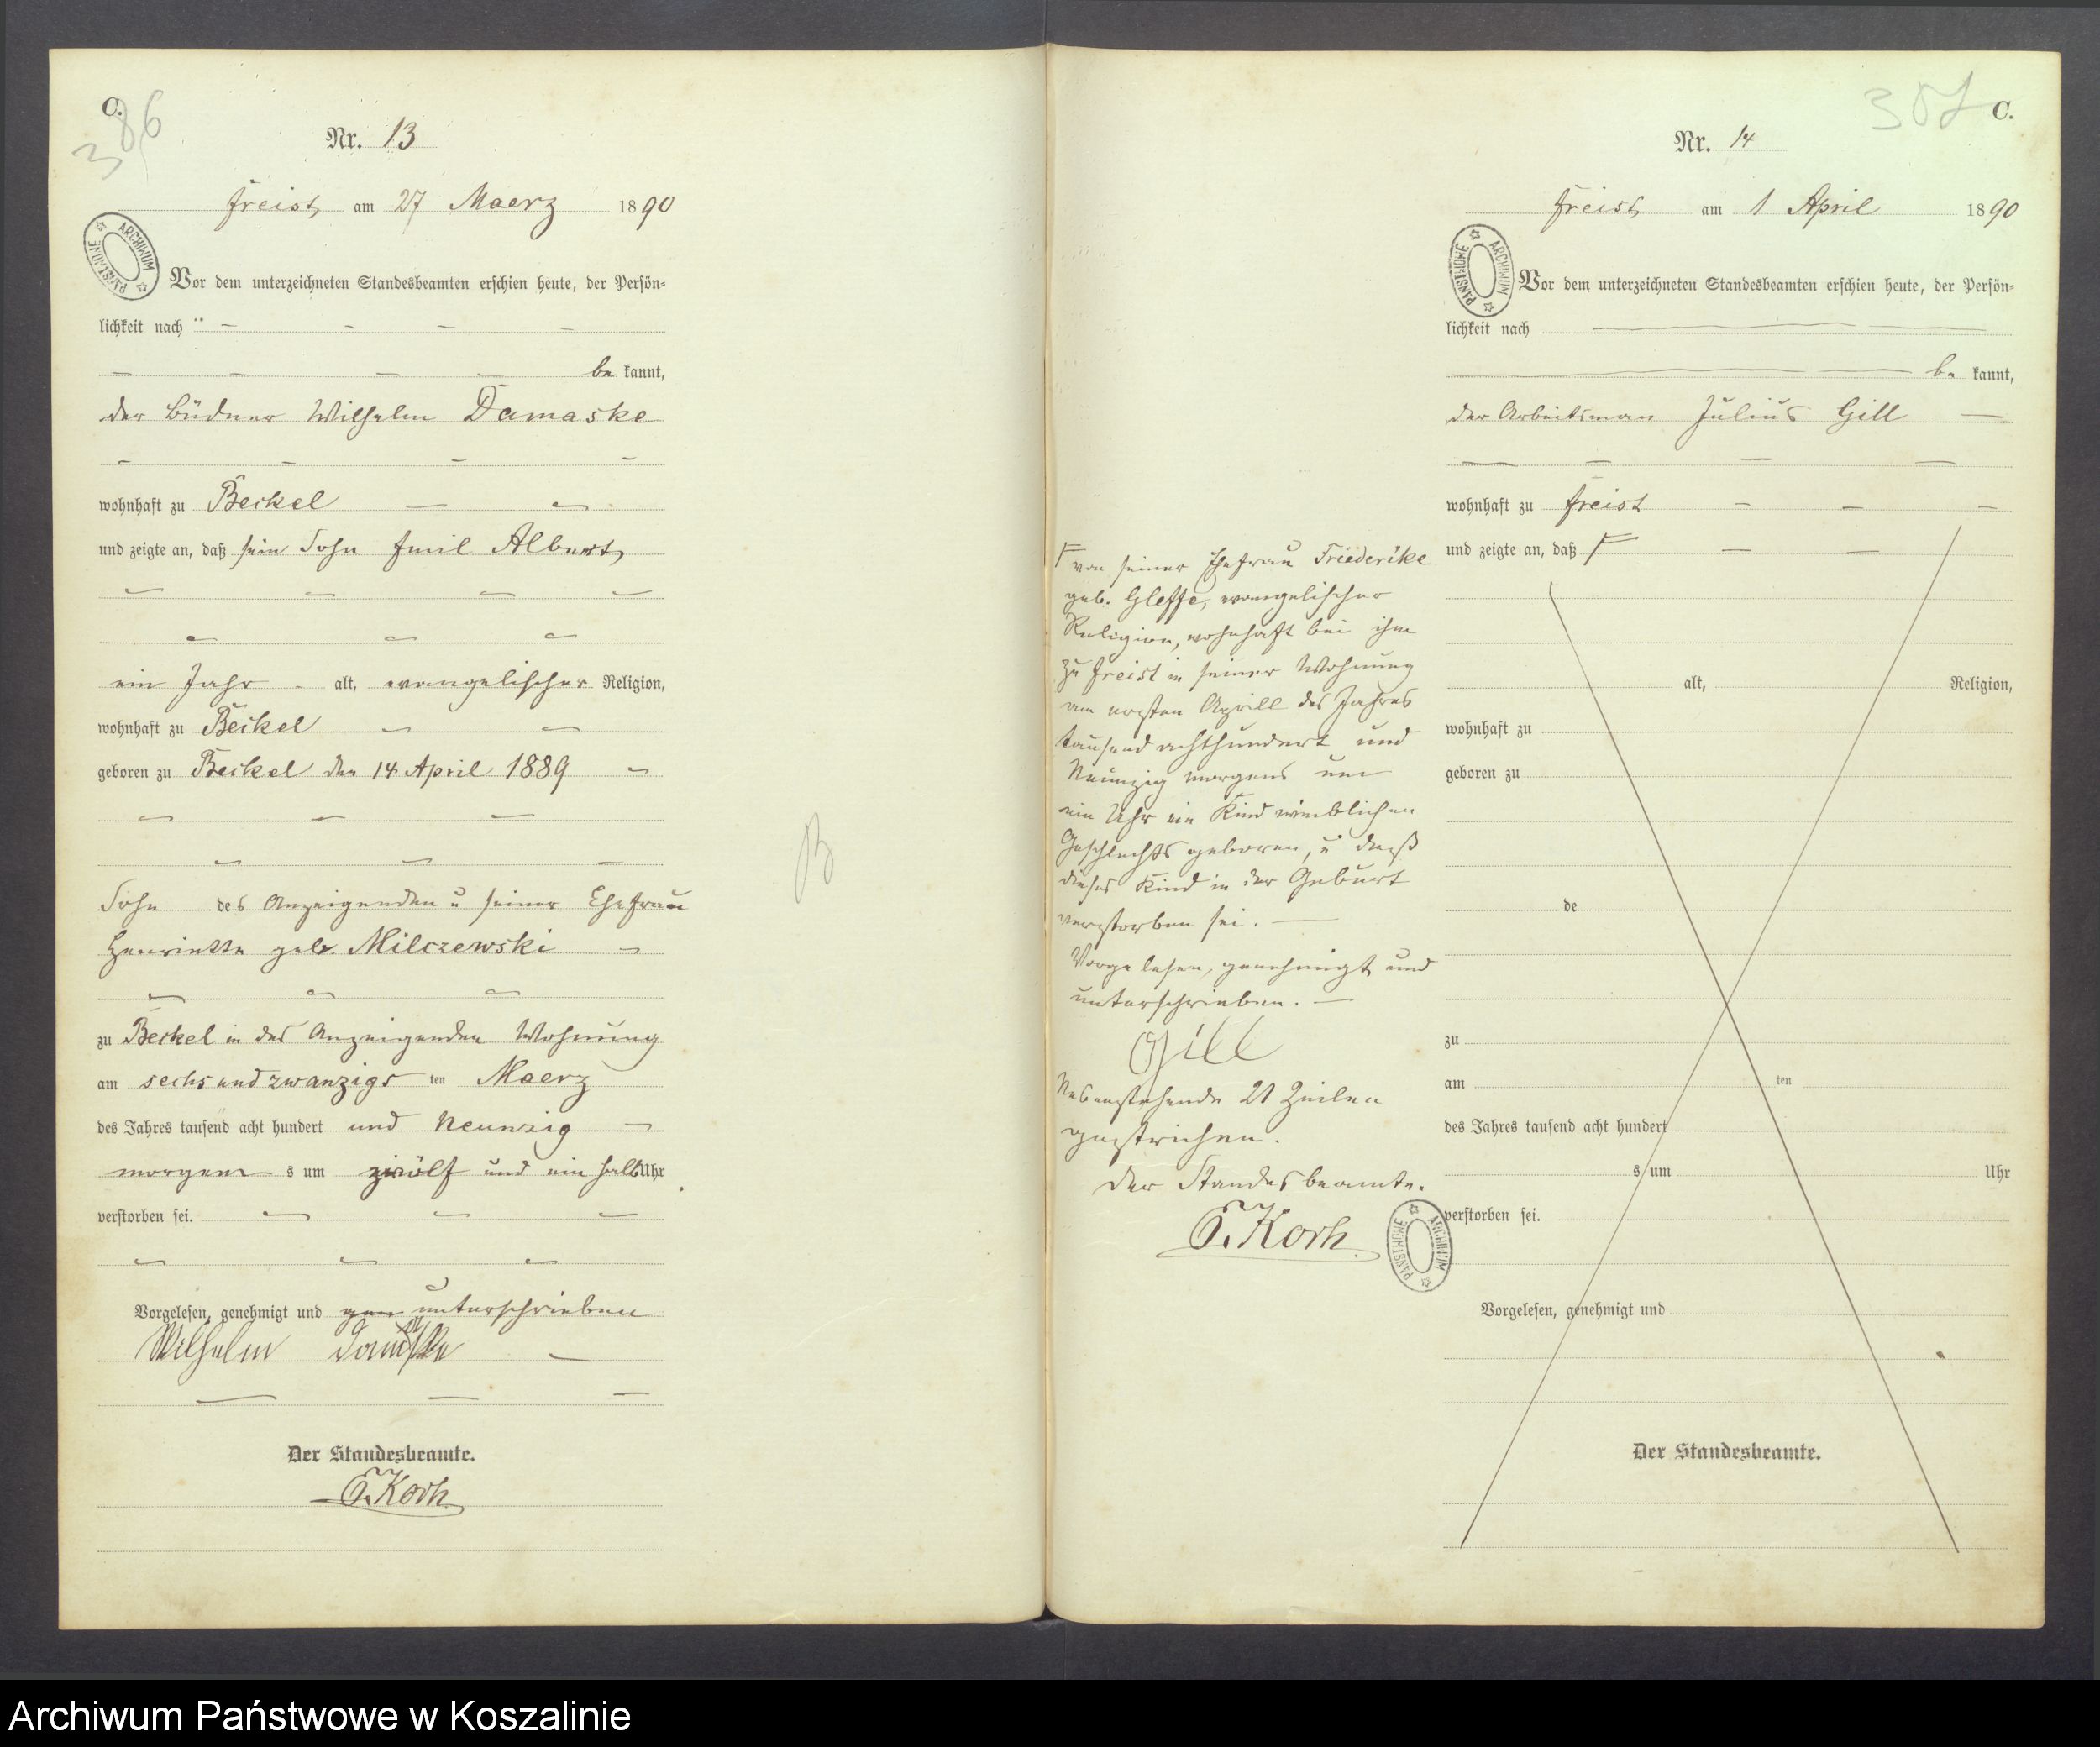 C.
386
Nr. 13
Freist, am 27 Maerz 1890
ARCHIWUM PAŃSTWOWE
Vor dem unterzeichneten Standesbeamten erschien heute, der Persön-
lichkeit nach
be kannt,
der Büdner Wilhelm Damaske
wohnhaft zu Beckel
und zeigte an, daß sein Sohn Emil Albert,
ein Jahr alt, evangelischer Religion,
wohnhaft zu Beckel
geboren zu Beckel den 14 April 1889
Sohn des Anzeigenden u seiner Ehefrau
Henriette geb. Milczewski
zu Beckel in des Anzeigenden Wohnung
am sechs und zwanzigs ten Maerz
des Jahres tausend acht hundert und Neunzig
morgen s um zwölf und ein halb Uhr
verstorben sei.
Vorgelesen, genehmigt und unterschrieben
Wilhelm Damaske
Der Standesbeamte.
Koch
B
C.
Nr. 14
Freist, am 1 April 1890
ARCHIWUM PAŃSTWOWE
Vor dem unterzeichneten Standesbeamten erschien heute, der Persön-
lichkeit nach
be kannt,
der Arbeitsman Julius Gill
wohnhaft zu Freist
und zeigte an, daß
alt, Religion,
wohnhaft zu
geboren zu
de
zu
am ten
des Jahres tausend acht hundert
s um Uhr
verstorben sei.
Vorgelesen, genehmigt und
Der Standesbeamte.
von seiner Ehefrau Friederike
geb. Gleffe, evangelischer
Religion, wohnhaft bei ihm
zu Freist in seiner Wohnung
am ersten Aprill des Jahres
tausend achthundert und
Neunzig morgens um
ein Uhr ein Kind weiblichen
Geschlechts geboren, u daß
dieses Kind in der Geburt
verstorben sei.
Vorgelesen, genehmigt und
unterschrieben.
Gill
Nebenstehende 21 Zeilen
gestrichen.
Der Standesbeamte.
Koch
ARCHIWUM PAŃSTWOWE
Archiwum Państwowe w Koszalinie